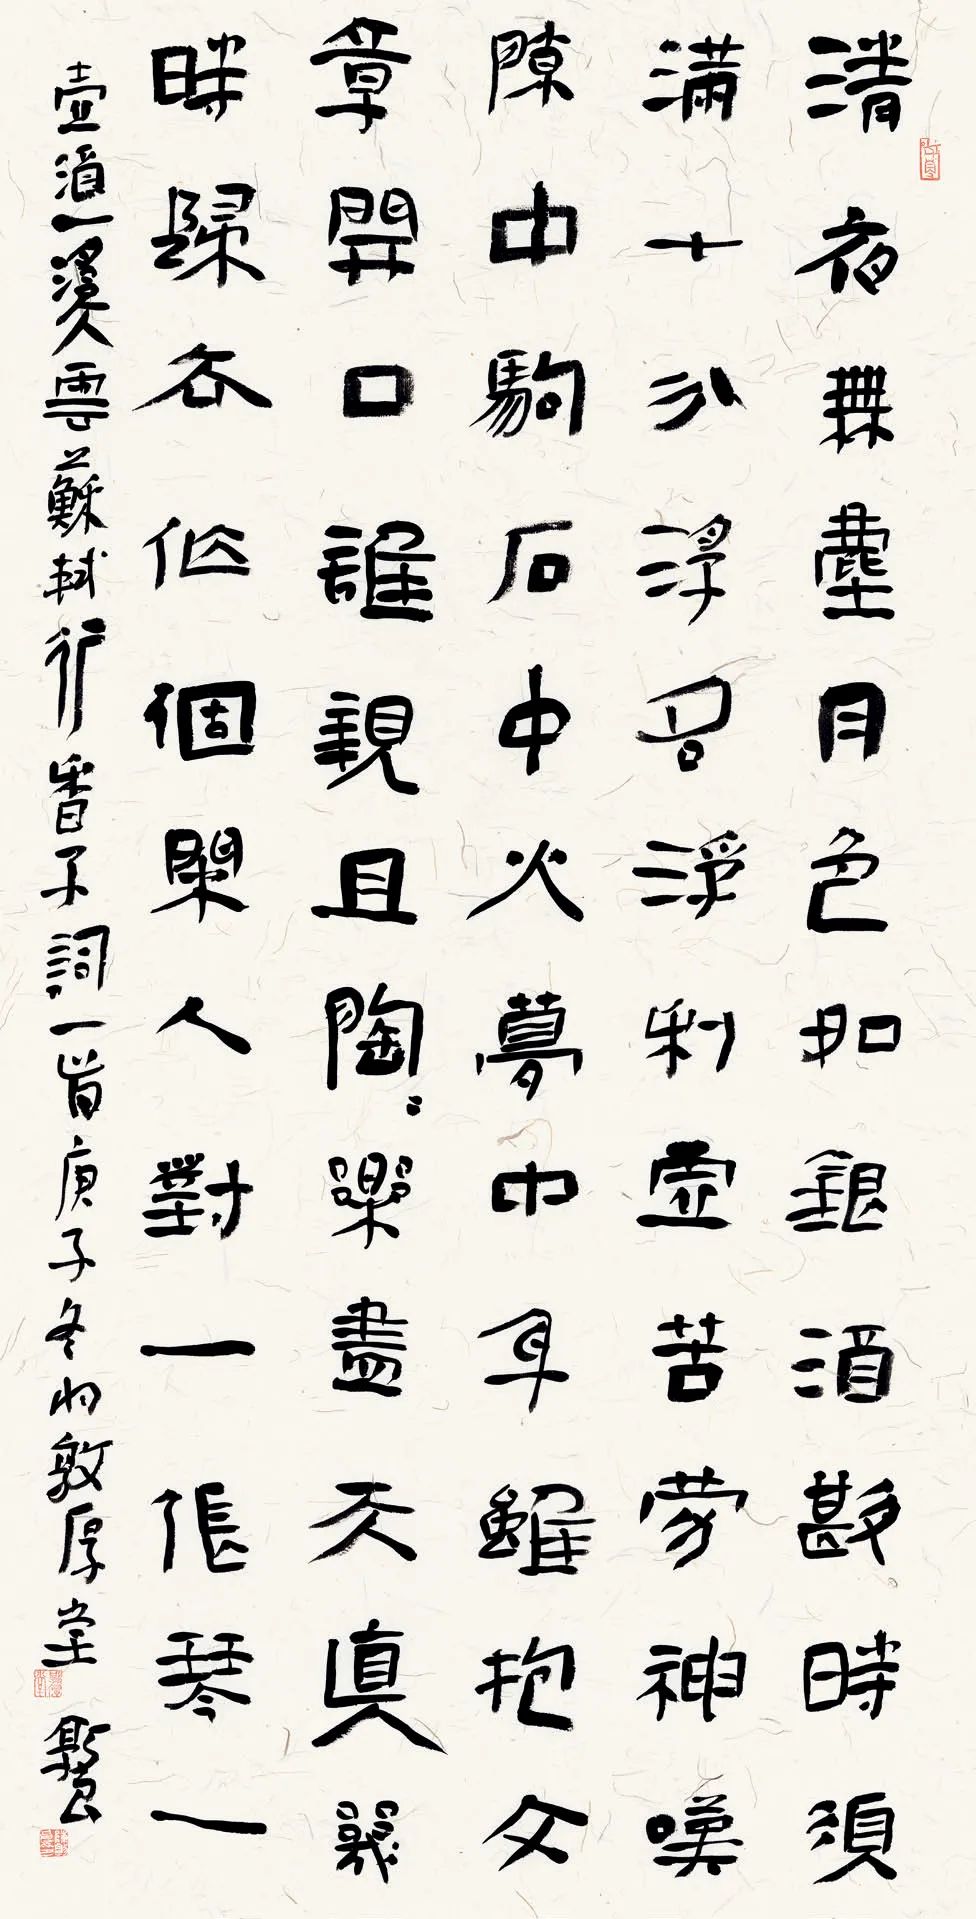 清夜無塵月色如銀酒斟時須
滿十分浮名浮利虛苦勞神嘆
隙中駒石中火夢中身雖抱文
章開口誰親且陶〻樂盡天真幾
時歸去作個閑人對一張琴一
壺酒一溪雲蘇軾行香子詞一首庚子冬敦厚堂